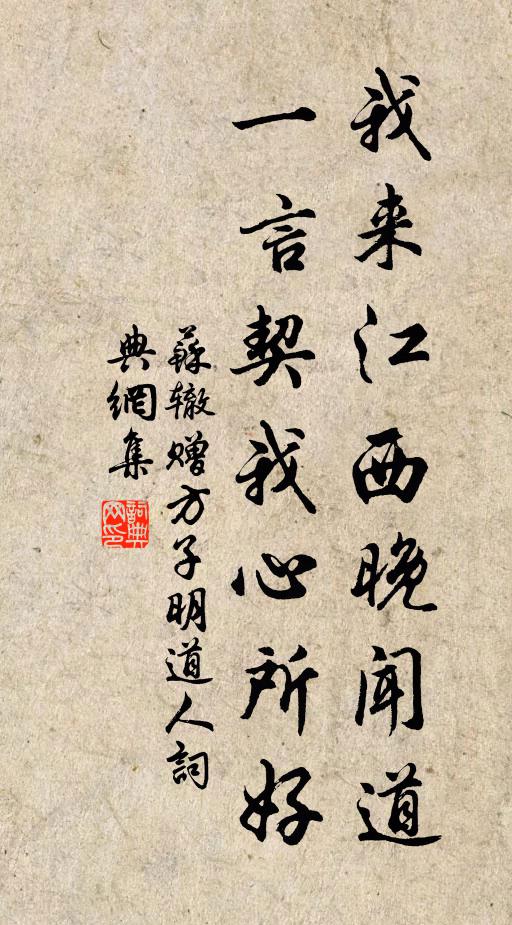 我来江西晚闻道
一言契我心所好
蘇辙赠方子明道人詞
典網集
詞典网印